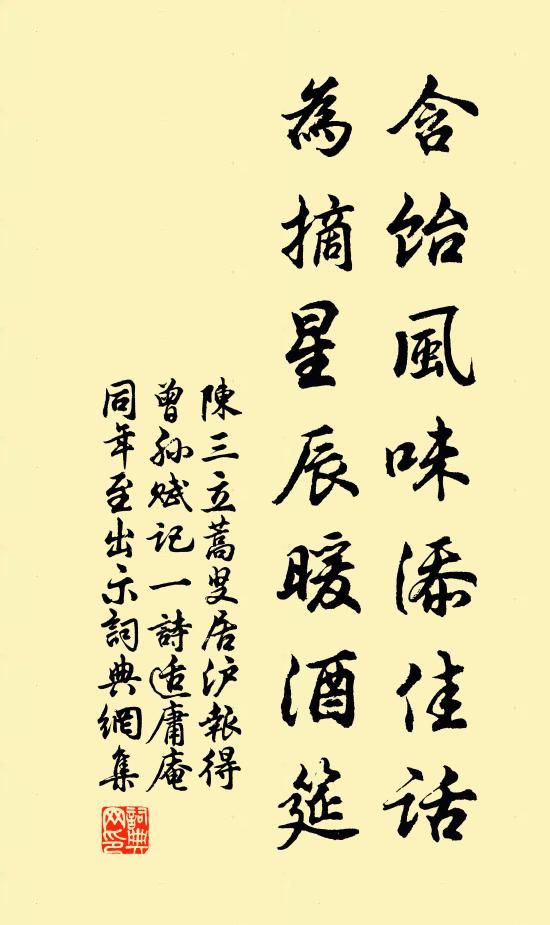 含飴風味添佳話
為摘星辰暖酒筵
陳三立蒿叟居沪報得
曾孫賦記一詩适庸庵
同年至出示詞典網集
詞典网印